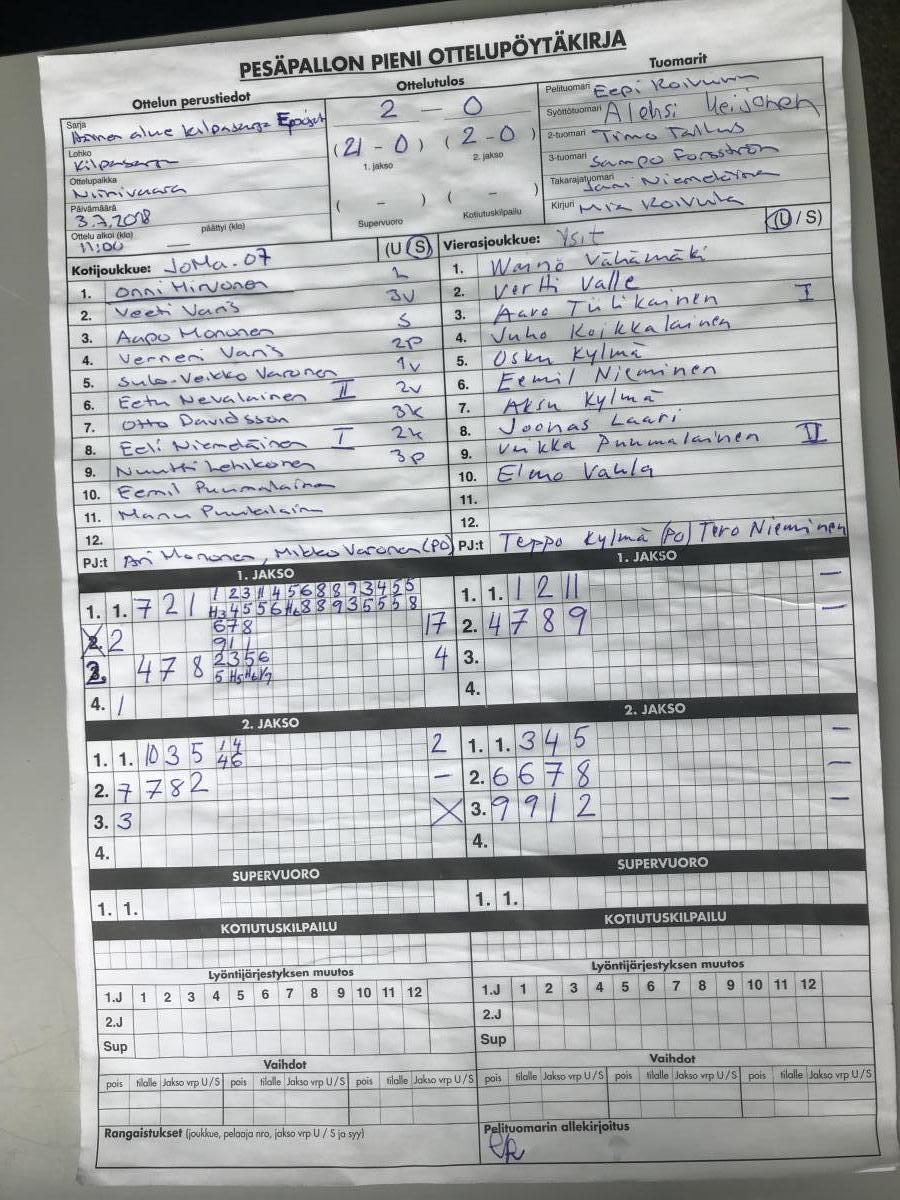 PESÄPALLON PIENI OTTELUPÖYTÄKIRJA
Ottelun perustiedot
Ottelutulos
Tuomarit
Sarja
alue kilpasarja
Lohko
Kilpasarja
Ottelupaikka
Niinivaara
Päivämäärä
3.7.2018
Ottelu alkoi (klo) päättyi (klo)
11:00 —
2 — 0
(21 - 0) (2 - 0)
1. jakso 2. jakso
( - ) ( - )
Supervuoro Kotiutuskilpailu
Pelituomari Eepi Koivunen
Syöttötuomari Aleksi Keijonen
2-tuomari Timo Tallus
3-tuomari Sampo Forsström
Takarajatuomari Jani Niemeläinen
Kirjuri Mia Koivula
Kotijoukkue: JoMa-07 (U/S)
1. Onni Hirvonen L
2. Veeti Varis 3v
3. Aapo Mononen S
4. Verneri Varis 2p
5. Sulo-Veikko Varonen 1v
6. Eetu Nevalainen II 2v
7. Otto Davidsson 3k
8. Eeli Niemeläinen I 2k
9. Nuutti Lehikoinen 3p
10. Eemil Puumalainen
11. Manu
12.
PJ:t Ari Mononen, Mikko Varonen (PO)
Vierasjoukkue: Ysit (U/S)
1. Wäinö Vähämäki
2. Vertti Valle
3. Aaro Tiilikainen I
4. Juho Koikkalainen
5. Osku Kylmä
6. Eemil Nieminen
7. Aksu Kylmä
8. Joonas Laari
9. Veikka Puumalainen II
10. Elmo Vahla
11.
12.
PJ:t Teppo Kylmä (PO) Tero Nieminen
1. JAKSO
1. 1. 7 2 1
1 2 3 11 4 5 6 8 8 9 3 4 5 5
H3 4 5 5 6 H6 8 8 9 3 5 5 5 8
2. 2 6 7 8 17
9 1 1
3. 4 7 8 2 3 5 6 4
5 H5 H6 V7
4. 1
1. JAKSO
1. 1. 1 2 11 —
2. 4 7 8 9 —
3.
4.
2. JAKSO
1. 1. 10 3 5 1 4 2
4 6
2. 7 7 8 2 —
3. 3 X
4.
2. JAKSO
1. 1. 3 4 5 —
2. 6 6 7 8 —
3. 9 9 1 2 —
4.
SUPERVUORO
1. 1.
SUPERVUORO
1. 1.
KOTIUTUSKILPAILU
KOTIUTUSKILPAILU
Lyöntijärjestyksen muutos
1.J 1 2 3 4 5 6 7 8 9 10 11 12
2.J
Sup
Lyöntijärjestyksen muutos
1.J 1 2 3 4 5 6 7 8 9 10 11 12
2.J
Sup
Vaihdot
pois tilalle Jakso vrp U/S pois tilalle Jakso vrp U/S pois tilalle Jakso vrp U/S
Vaihdot
pois tilalle Jakso vrp U/S pois tilalle Jakso vrp U/S pois tilalle Jakso vrp U/S
Rangaistukset (joukkue, pelaaja nro, jakso vrp U / S ja syy)
Pelituomarin allekirjoitus